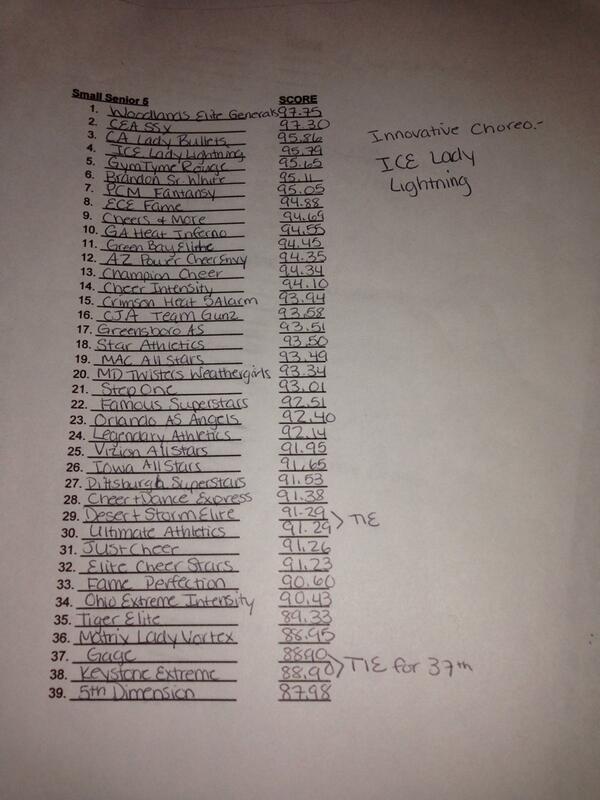 Small Senior 5 SCORE
1. Woodlands Elite Generals 97.75
2. CEA SSX 97.30
3. CA Lady Bullets 95.86
4. ICE Lady Lightning 95.79
5. GymTyme Rouge 95.65
6. Brandon Sr. White 95.11
7. PCM Fantansy 95.05
8. ECE Fame 94.88
9. Cheers & More 94.69
10. GA Heat Inferno 94.55
11. Green Bay Elite 94.45
12. AZ Power Cheer Envy 94.35
13. Champion Cheer 94.34
14. Cheer Intensity 94.10
15. Crimson Heat 5Alarm 93.94
16. CJA Team Gunz 93.58
17. Greensboro AS 93.51
18. Star Athletics 93.50
19. MAC All Stars 93.49
20. MD Twisters Weathergirls 93.34
21. Step One 93.01
22. Famous Superstars 92.51
23. Orlando AS Angels 92.40
24. Legendary Athletics 92.14
25. Vizion Allstars 91.95
26. Iowa AllStars 91.65
27. Pittsburgh Superstars 91.53
28. Cheer + Dance Express 91.38
29. Desert Storm Elite 91.29
30. Ultimate Athletics 91.29 > TIE
31. Just Cheer 91.26
32. Elite Cheer Stars 91.23
33. Fame Perfection 90.60
34. Ohio Extreme Intensity 90.43
35. Tiger Elite 89.33
36. Matrix Lady Vortex 88.95
37. Gage 8890
38. Keystone Extreme 88.90 > TIE for 37th
39. 5th Dimension 87.98
Innovative Choreo.-
ICE Lady
Lightning